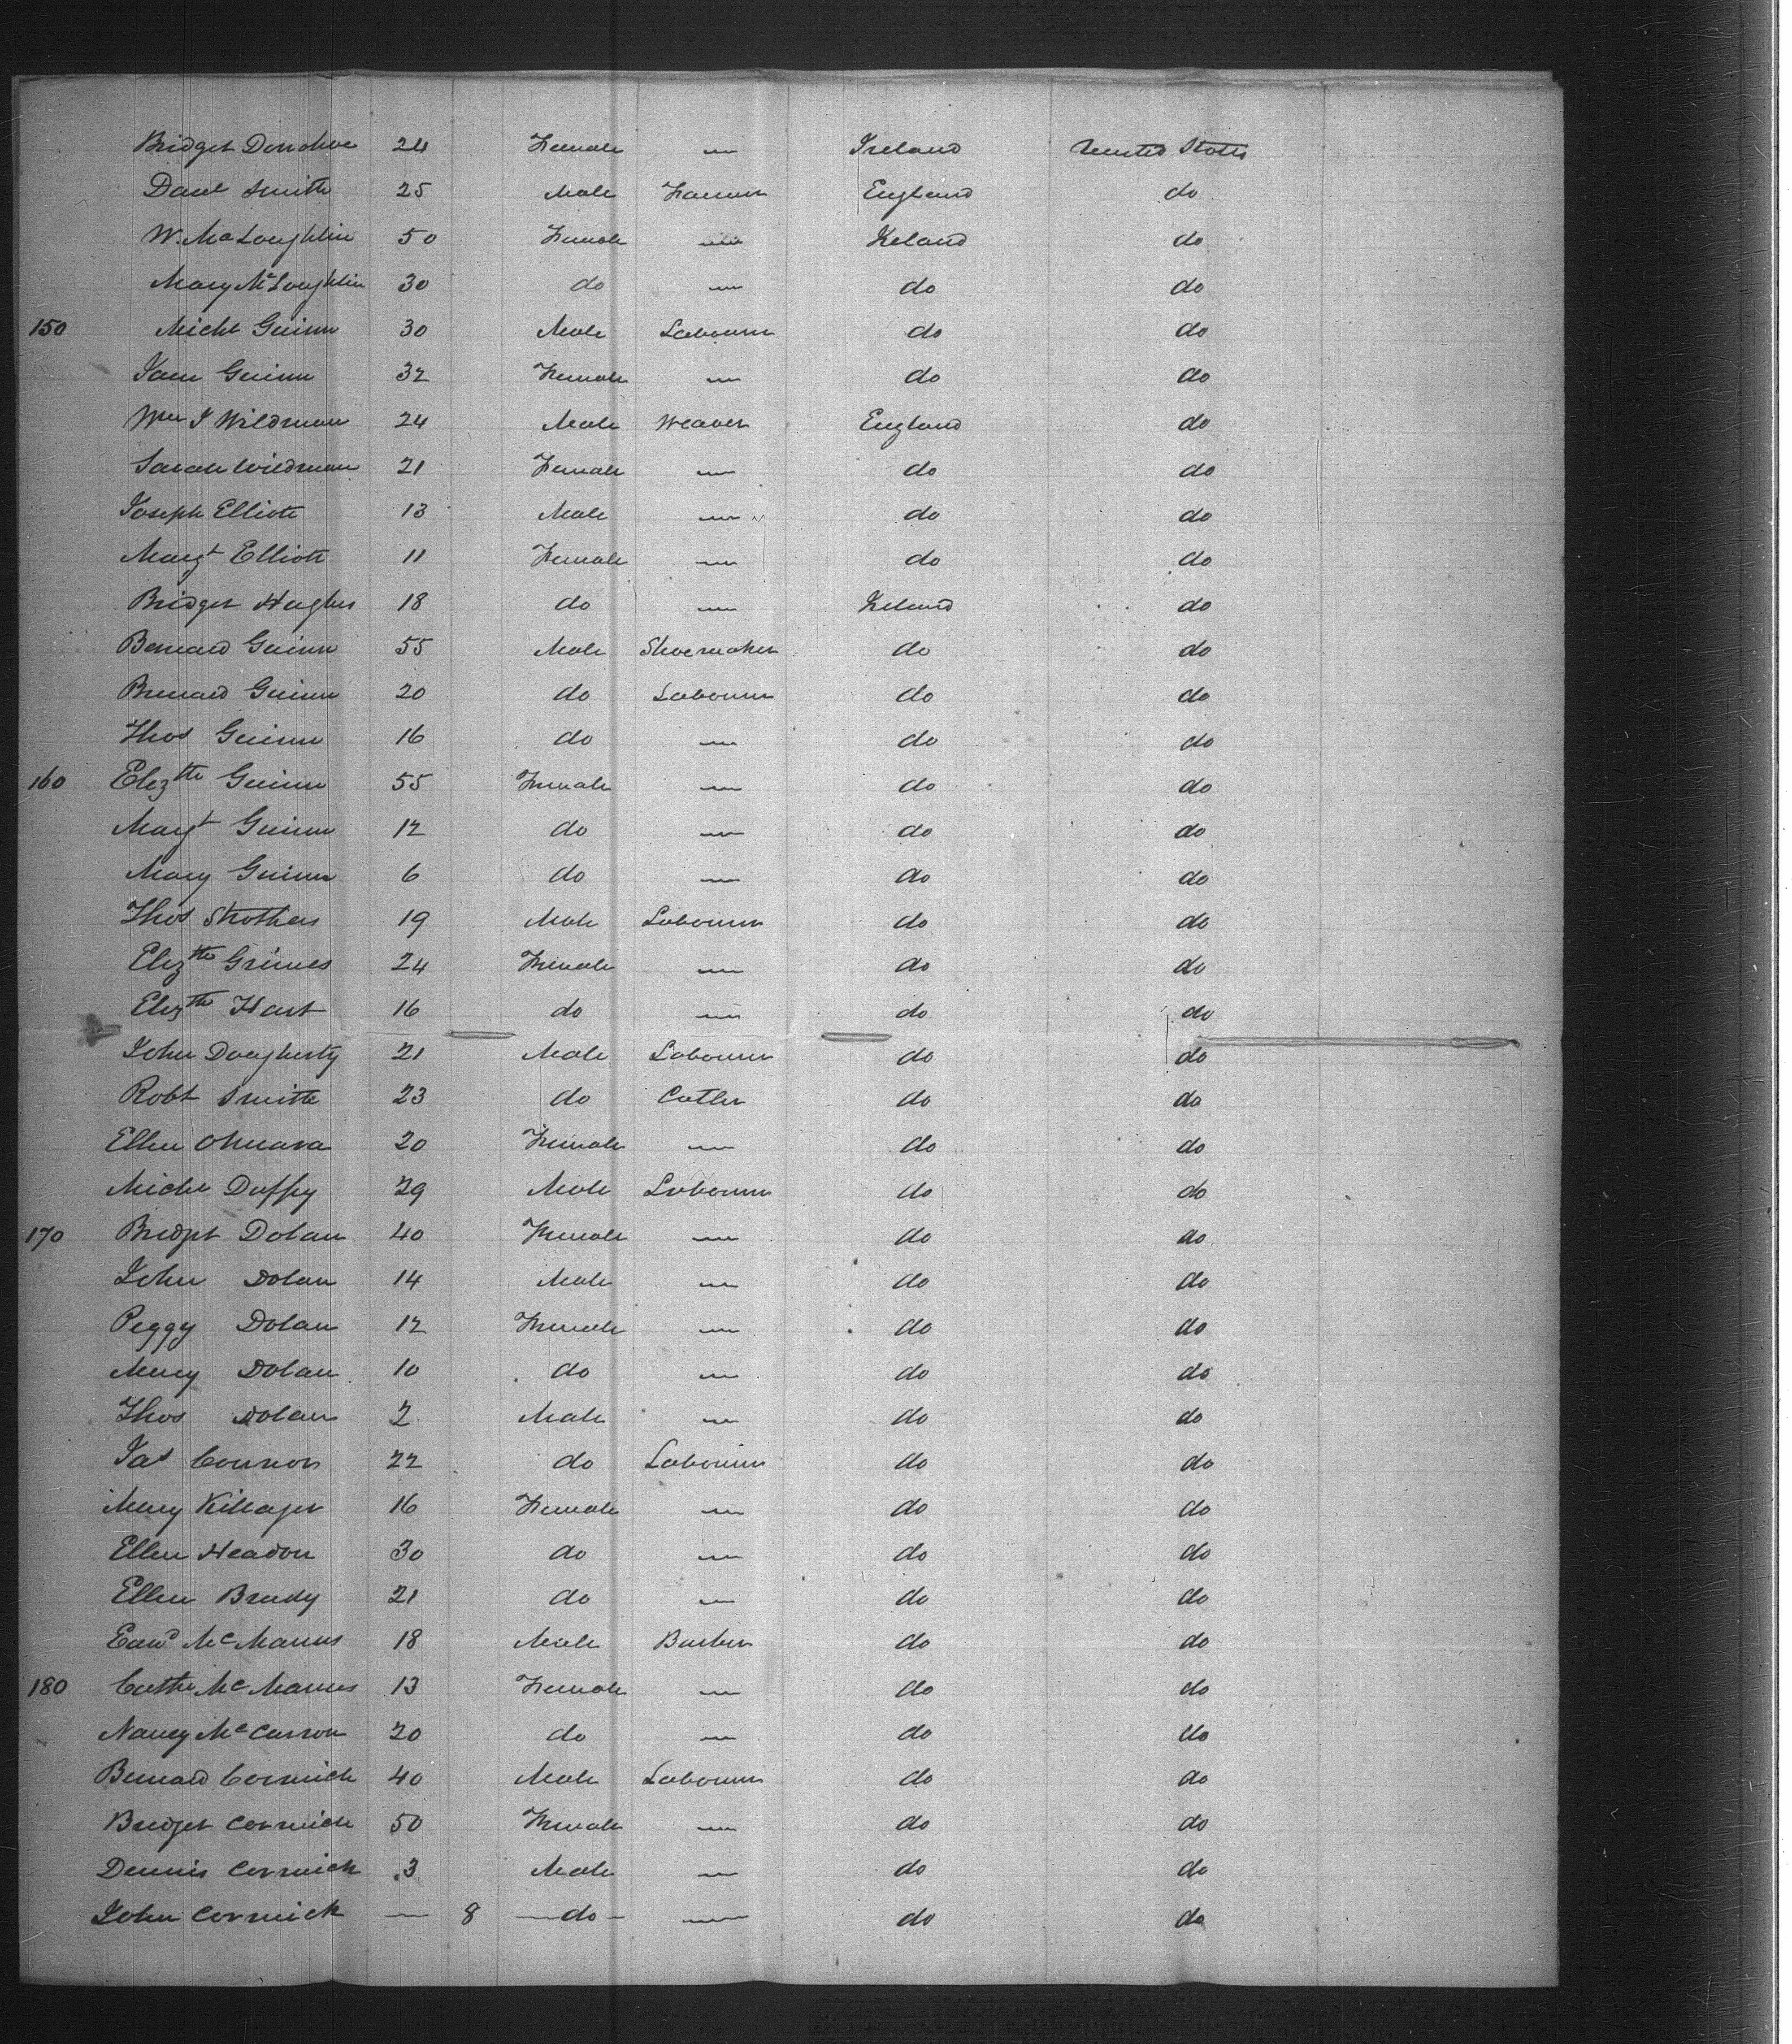 Bridget Donohue 24 Female — Ireland United States
Danl Smith 25 Male Farmer England do
W. McLoughlin 50 Female — Ireland do
Mary McLoughlin 30 do — do do
150 Michl Guinn 30 Male Labourer do do
Jane Guinn 32 Female — do do
Wm J Wildman 24 Male Weaver England do
Sarah Wildman 21 Female — do do
Joseph Elliott 13 Male — do do
Margt Elliott 11 Female — do do
Bridget Hughes 18 do — Ireland do
Bernard Guinn 55 Male Shoemaker do do
Bernard Guinn 20 do Labourer do do
Thos Guinn 16 do — do do
160 Elizth Guinn 55 Female — do do
Margt Guinn 12 do — do do
Mary Guinn 6 do — do do
Thos Strothers 19 Male Labourer do do
Elizth Grimes 24 Female — do do
Elizth Hart 16 do — do do
John Dougherty 21 Male Labourer do do
Robt Smith 23 do Cutler do do
Ellen Omeara 20 Female — do do
Michl Duffey 29 Male Labourer do do
170 Bridget Dolan 40 Female — do do
John Dolan 14 Male — do do
Peggy Dolan 12 Female — do do
Mary Dolan 10 do — do do
Thos Dolan 2 Male — do do
Jas Connor 22 do Labourer do do
Mary 16 Female — do do
Ellen Headon 30 do — do do
Ellen Brady 21 do — do do
Edwd McManus 18 Male Barber do do
180 Cathe McManus 13 Female — do do
Nancy McCarron 20 do — do do
Bernard Cormick 40 Male Labourer do do
Bridget Cormick 50 Female — do do
Dennis Cormick 3 Male — do do
John Cormick — 8 — do — — do do